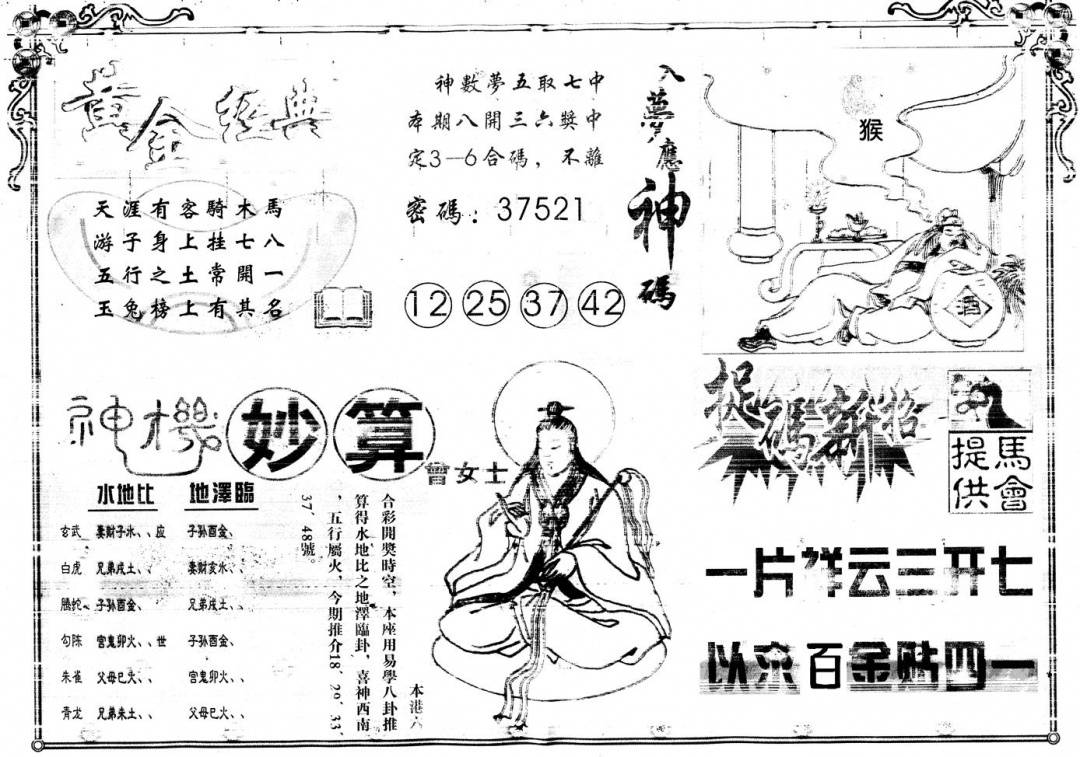 黃金經典
天涯有客騎木馬
游子身上挂七八
五行之土常開一
玉兔榜上有其名
神數夢五取七中
本期八開三六獎中
定3—6合碼，不離
密碼：37521
12 25 37 42
入夢應神碼
猴
酒
神機妙算
曾女士
水地比 地澤臨
玄武 妻财子水、、应 子孙酉金、
白虎 兄弟戌土、 妻财亥水、、
騰蛇 子孙酉金、 兄弟戌土、、
勾陈 官鬼卯火、、世 子孙酉金、
朱雀 父母巳火、、 官鬼卯火、、
青龙 兄弟未土、、 父母巳火、、
本港六
合彩開獎時空，本座用易學八卦推
算得水地比之地澤臨卦，喜神西南
，五行屬火，今期推介18、29、33、
37、48號。
捉碼新招
馬會
提供
一片祥云三开七
以求百金贴四一